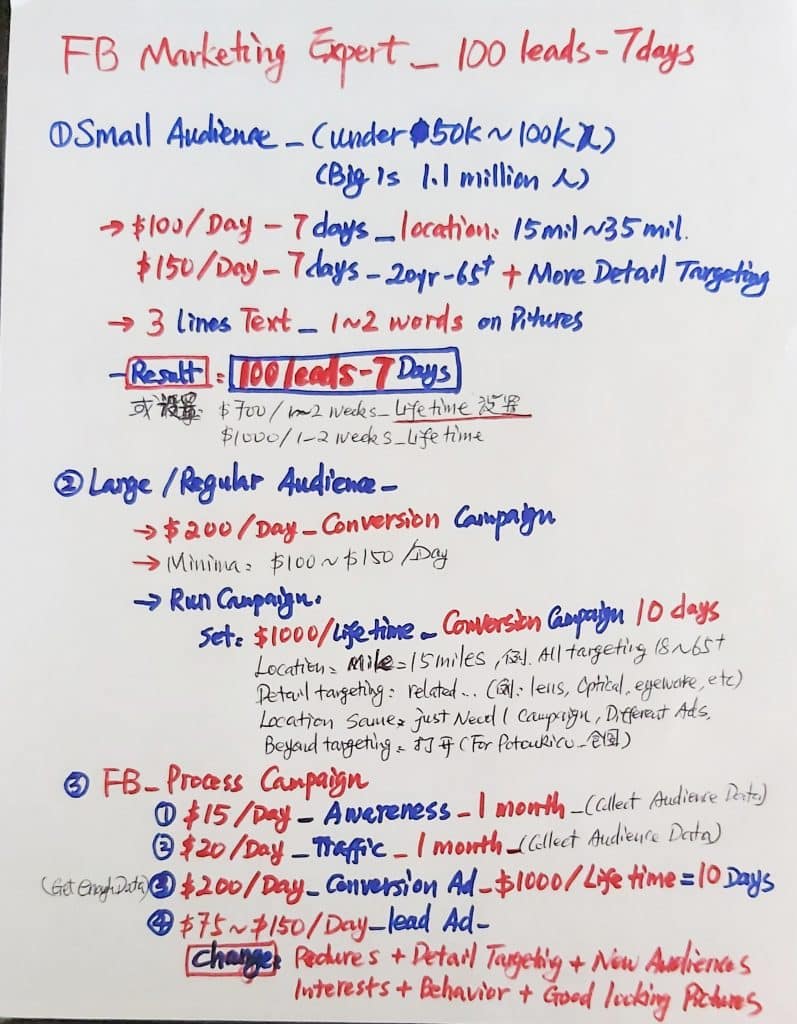 FB Marketing Expert_ 100 leads-7days
①Small Audience_(under $50k~100k人)
(Big is 1.1 million 人)
→ $100/Day - 7 days_location: 15mil~35mil.
$150/Day-7days-20yr-65+ + More Detail Targeting
→ 3 Lines Text_ 1~2 words on Pitures
-Result: 100 leads-7 Days
或设置: $700/1~2 weeks_Lifetime 设置
$1000/1-2 weeks_Lifetime
②Large/Regular Audience-
→ $200/Day_Conversion Campaign
→ Minima: $100~$150/Day
→ Run Campaign.
Set: $1000/Lifetime_Conversion Campaign 10 days
Location: Mile=15miles, 例. All targeting 18~65+
Detail targeting: related... (例: lens, Optical, eyeware, etc)
Location Same: just Need 1 Campaign, Different Ads.
Beyond targeting: 打开 (For PotouRico_全国)
③ FB_Process Campaign
① $15/Day_Awareness_1 month_(Collect Audience Data)
② $20/Day_Traffic_1 month_(Collect Audience Data)
(Get Enough Data) ③ $200/Day_Conversion Ad_$1000/Lifetime=10 Days
④ $75~$150/Day_lead Ad-
Change: Pictures + Detail Targeting + New Audiences
Interests + Behavior + Good looking Pictures